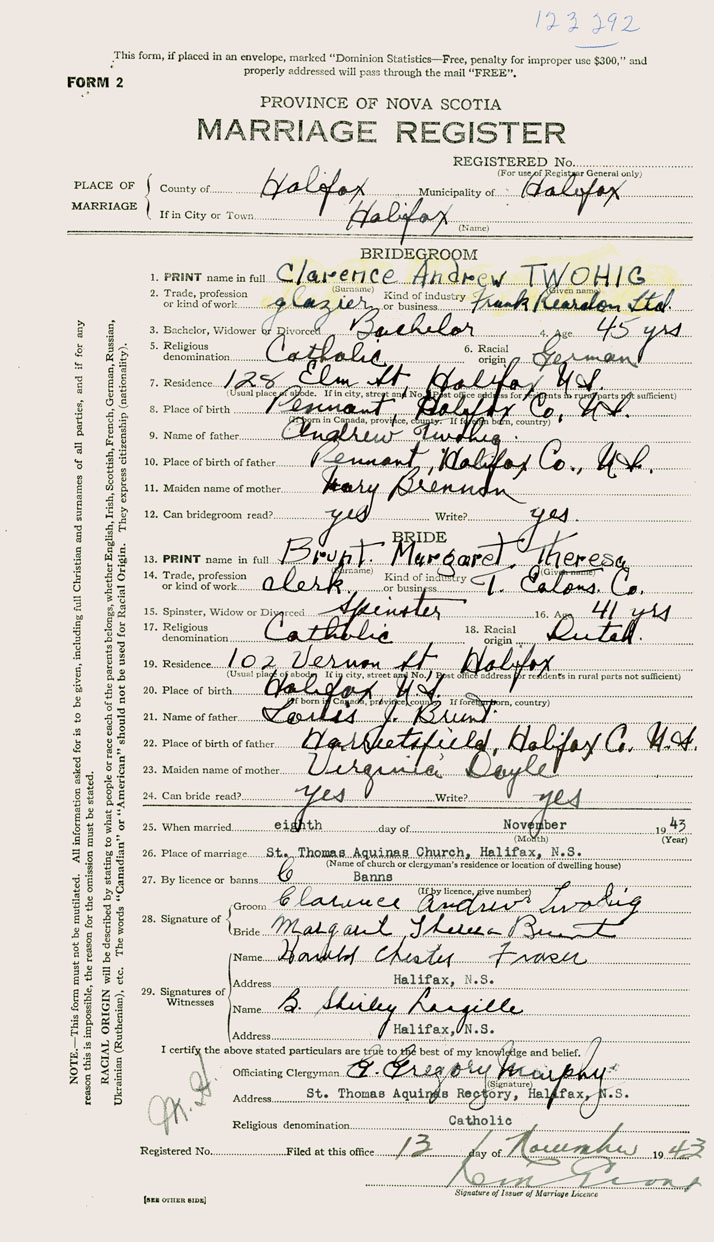 123292
This form, if placed in an envelope, marked "Dominion Statistics—Free, penalty for improper use $300," and
properly addressed will pass through the mail "FREE".
FORM 2
PROVINCE OF NOVA SCOTIA
MARRIAGE REGISTER
REGISTERED No.
(For use of Registrar General only)
PLACE OF MARRIAGE
County of Halifax Municipality of Halifax
If in City or Town Halifax
(Name)
BRIDEGROOM
1. PRINT name in full Clarence Andrew TWOHIG
(Surname) (Given name)
2. Trade, profession or kind of work glazier Kind of industry or business Frank Reardon Ltd.
3. Bachelor, Widower or Divorced Bachelor 4. Age 45 yrs
5. Religious denomination Catholic 6. Racial origin German
7. Residence 128 Elm St, Halifax N.S.
(Usual place of abode. If in city, street and No. Post office address for residents in rural parts not sufficient)
8. Place of birth Pennant, Halifax Co, N.S.
(If born in Canada, province, county. If foreign born, country)
9. Name of father Andrew Twohig
10. Place of birth of father Pennant, Halifax Co., N.S.
11. Maiden name of mother Mary Brennan
12. Can bridegroom read? yes Write? yes.
BRIDE
13. PRINT name in full Brunt. Margaret Theresa
(Surname) (Given name)
14. Trade, profession or kind of work clerk Kind of industry or business T. Eatons. Co.
15. Spinster, Widow or Divorced Spinster 16. Age 41 yrs
17. Religious denomination Catholic 18. Racial origin Dutch.
19. Residence 102 Vernon St Halifax
(Usual place of abode. If in city, street and No. Post office address for residents in rural parts not sufficient)
20. Place of birth Halifax N.S.
(If born in Canada, province, county. If foreign born, country)
21. Name of father Louis J. Brunt.
22. Place of birth of father Harrietsfield, Halifax Co. N.S.
23. Maiden name of mother Virginia Doyle
24. Can bride read? yes Write? yes
25. When married eighth day of November 1943
(Month) (Year)
26. Place of marriage St. Thomas Aquinas Church, Halifax, N.S.
(Name of church or clergyman's residence or location of dwelling house)
27. By licence or banns Banns
(If by licence, give number)
28. Signature of
Groom Clarence Andrew Twohig
Bride Margaret Theresa Brunt
29. Signatures of Witnesses
Name Harold Chester Fraser
Address Halifax, N.S.
Name B. Shirley Langille
Address Halifax, N.S.
I certify the above stated particulars are true to the best of my knowledge and belief.
Officiating Clergyman G. Gregory Murphy
(Signature)
Address St. Thomas Aquinas Rectory, Halifax, N.S.
Religious denomination Catholic
Registered No. Filed at this office 13 day of November 1943
Signature of Issuer of Marriage Licence
[SEE OTHER SIDE]
NOTE.—This form must not be mutilated. All information asked for is to be given, including full Christian and surnames of all parties, and if for any
reason this is impossible, the reason for the omission must be stated.
RACIAL ORIGIN will be described by stating to what people or race each of the parents belongs, whether English, Irish, Scottish, French, German, Russian,
Ukrainian (Ruthenian), etc. The words "Canadian" or "American" should not be used for Racial Origin. They express citizenship (nationality).